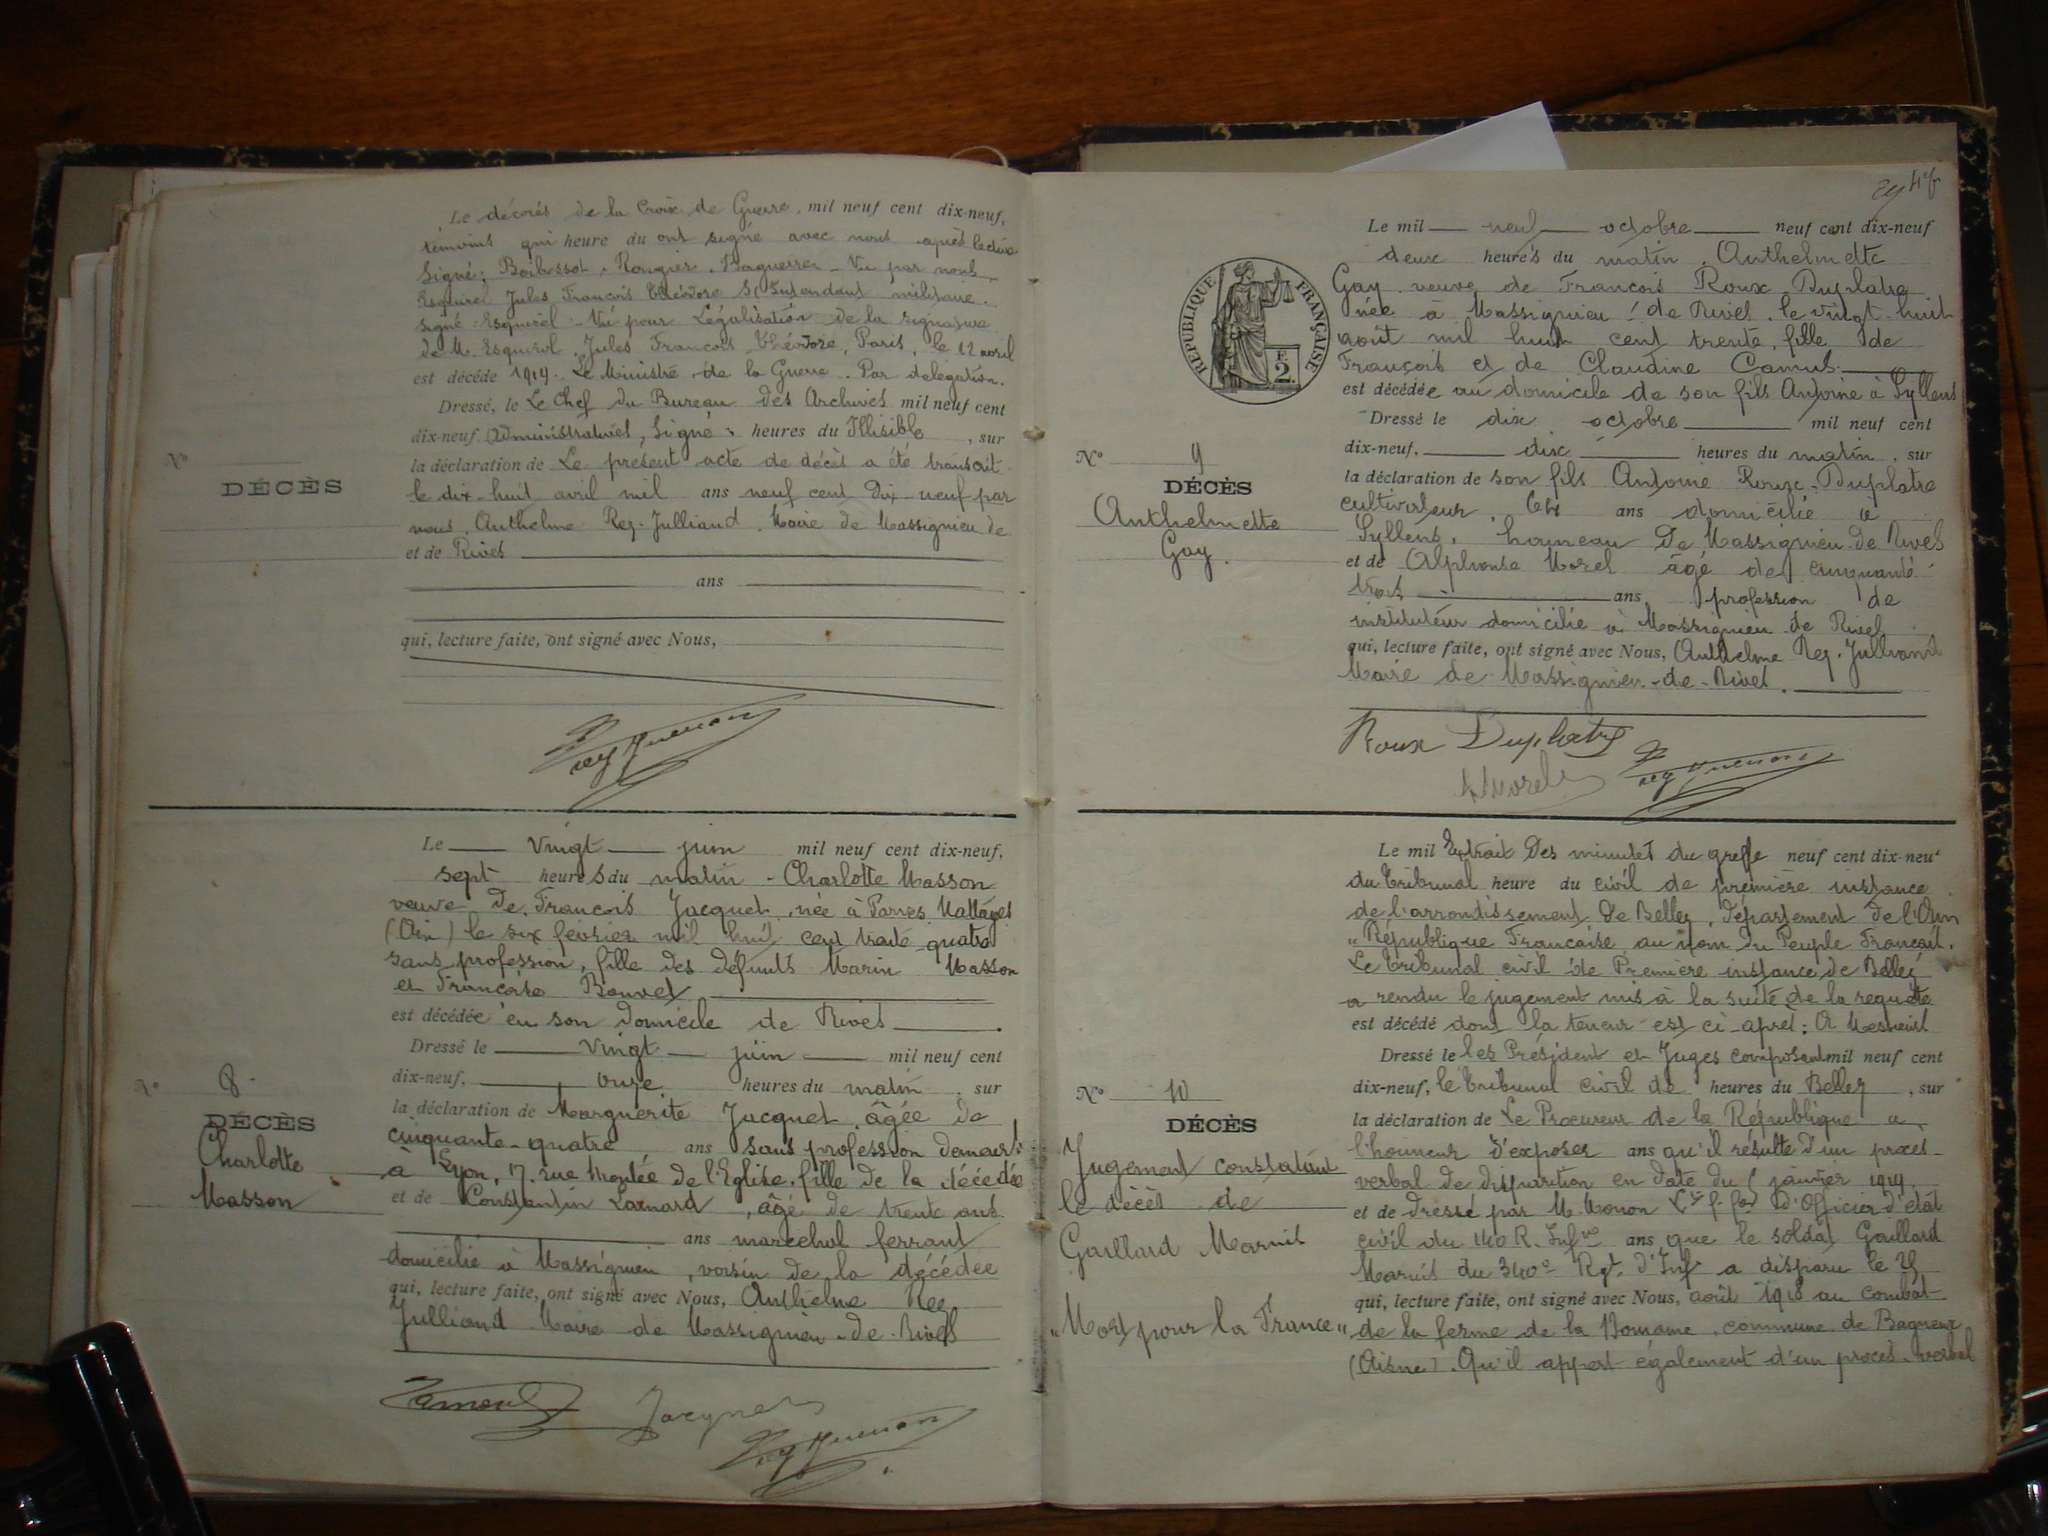 Le décorés de la Croix de Guerre, mil neuf cent dix-neuf,
témoins qui heure du ont signé avec nous après lecture
Signé: Rougier. Vu par nous
Jules François Théodore S/Intendant militaire.
signé Esquirol - Vu pour Légalisation de la signature
de M. Esquirol, Jules François Théodore, Paris, le 12 avril
est décédé 1919. Le Ministre de la Guerre. Par délégation.
Dressé, le Le Chef du Bureau des Archives mil neuf cent
dix-neuf Administratives, Signé: heures du Illisible, sur
la déclaration de Le présent acte de décès a été transcrit
le dix-huit avril mil ans neuf cent dix-neuf par
nous, Anthelme Rey-Julliand, Maire de Massignieu de
et de Rives
ans
qui, lecture faite, ont signé avec Nous,
No
DÉCÈS
Le vingt juin mil neuf cent dix-neuf,
sept heures du matin - Charlotte Masson
veuve de François Jacquet, née à Parves Nattages
(Ain) le six février mil huit cent trente quatre
sans profession, fille des défunts Marin Masson
et Françoise Bouvet
est décédée en son domicile de Rives.
Dressé le vingt juin mil neuf cent
dix-neuf, onze heures du matin, sur
la déclaration de Marguerite Jacquet, âgée de
cinquante-quatre ans sans profession demeurt
à Lyon, 17, rue Montée de l'Eglise, fille de la décédée
et de Constantin, âgé de trente ans
ans maréchal ferrant
domicilié à Massignieu, voisin de la décédée
qui, lecture faite, ont signé avec Nous, Anthelme Rey
Julliand Maire de Massignieu-de-Rives
No 8.
DÉCÈS
Charlotte
Masson
Jacquet
Le mil neuf octobre neuf cent dix-neuf
deux heures du matin, Anthelmette
Gay veuve de François Roux Duplatre
née à Massignieu de Rives, le vingt-huit
août mil huit cent trente, fille de
François et de Claudine Camus.
est décédée au domicile de son fils Antoine à Syllens
Dressé le dix octobre mil neuf cent
dix-neuf, dix heures du matin, sur
la déclaration de son fils Antoine Roux-Duplatre
cultivateur, 64 ans domicilié à
Syllens, hameau de Massignieu de Rives
et de Alphonse Morel âgé de cinquante
trois ans, profession de
instituteur domicilié à Massignieu de Rives
qui, lecture faite, ont signé avec Nous, Anthelme Rey-Julliand
Maire de Massignieu-de-Rives.
Roux Duplatre
Morel
RÉPUBLIQUE FRANÇAISE
F.
2.
No 9
DÉCÈS
Anthelmette
Gay.
Le mil Extrait des minutes du greffe neuf cent dix-neuf
du tribunal heure du civil de première instance
de l'arrondissement de Belley, département de l'Ain
"République Française au nom du Peuple Français.
Le tribunal civil de Première instance de Belley
a rendu le jugement mis à la suite de la requête
est décédé dont la teneur est ci-après: A Messieurs
Dressé le les Président et Juges composant mil neuf cent
dix-neuf, le tribunal civil de heures du Belley, sur
la déclaration de Le Procureur de la République a
l'honneur d'exposer ans qu'il résulte d'un procès-
verbal de disparition en date du janvier 1919
et de dressé par M. Monon Lt f. fon d'Officier d'état
civil du 140 R. Infrie ans que le soldat Gaillard
Marius du 340e Rgt. d'Inf a disparu le 29
qui, lecture faite, ont signé avec Nous, août 1918 au combat
de la ferme de la, commune de Bagneux
(Aisne). Qu'il appert également d'un procès-verbal
No 10
DÉCÈS
Jugement constatant
le décès de
Gaillard Marius
"Mort pour la France"